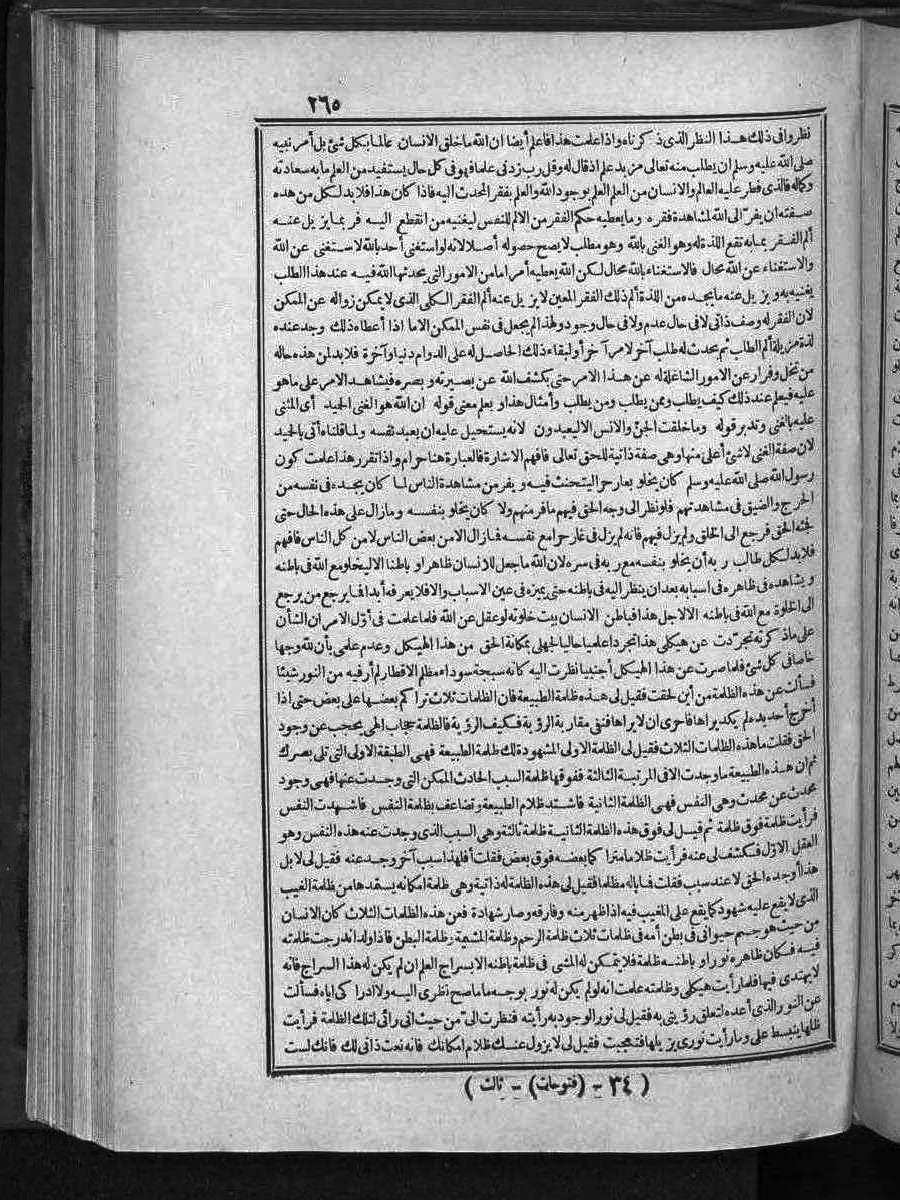 ٢٦٥
نظروا في ذلك هذا النظر الذي ذكرناه واذا علمت هذا فاعلم أيضا ان الله ما خلق الانسان عالما بكل شئ بل أمر نبيه
صلى الله عليه وسلم ان يطلب منه تعالى مزيد علم اذ قال له وقل رب زدني علما فهو في كل حال يستفيد من العلم ما به سعادته
وكماله فالذي فطر عليه العالم والانسان من العلم العلم بوجود الله والعلم بفقر المحدث اليه فاذا كان هذا فلا بد لكل من هذه
صفته ان يفرّ الى الله لمشاهدة فقره وما يعطيه حكم الفقر من الالم للنفس ليغنيه من انقطع اليه فربما يزيل عنه
ألم الفقر بما به تقع اللذة له وهو الغنى بالله وهو مطلب لا يصح حصوله أصلا لانه لو استغنى أحد بالله لاستغنى عن الله
والاستغناء عن الله محال فالاستغناء بالله محال لكن الله يعطيه أمرا ما من الامور التي يحدثها الله فيه عند هذا الطلب
يغنيه به ويزيل عنه ما يجده من اللذة ألم ذلك الفقر المعين لا يزيل عنه ألم الفقر الكلى الذي لا يمكن زواله عن الممكن
لان الفقر له وصف ذاتي لا في حال عدم ولا في حال وجود ولهذا لم يجعل في نفس الممكن الا ما اذا أعطاه ذلك وجد عنده
لذة مزيلة ألم الطلب ثم يحدث له طلب آخر لامر آخر أو لبقاء ذلك الحاصل له على الدوام دنيا وآخرة فلا بد لمن هذه حاله
من تخل وفرار عن الامور الشاغلة له عن هذا الامر حتى يكشف الله عن بصيرته وبصره فيشاهد الامر على ما هو
عليه فيعلم عند ذلك كيف يطلب وممن يطلب ومن يطلب وأمثال هذا ويعلم معنى قوله ان الله هو الغنى الحميد أي المثنى
عليه بالغنى وتدبر قوله وما خلقت الجنّ والانس الا ليعبدون لانه يستحيل عليه ان يعبد نفسه ولما قلناه أتى بالحميد
لان صفة الغنى لا شئ أعلى منها وهي صفة ذاتية للحق تعالى فافهم الاشارة فالعبارة هنا حرام واذا تقرر هذا علمت كون
رسول الله صلى الله عليه وسلم كان يخلو بغار حرا ليتحنث فيه ويفر من مشاهدة الناس لما كان يجده في نفسه من
الحرج والضيق في مشاهدتهم فلو نظر الى وجه الحق فيهم ما فر منهم ولا كان يخلو بنفسه وما زال على هذه الحال حتى
فجئه الحق فرجع الى الخلق ولم يزل فيهم فانه لم يزل في غار حرا مع نفسه فما زال الا من بعض الناس لا من كل الناس فافهم
فلا بد لكل طالب ربه أن يخلو بنفسه مع ربه في سره لان الله ما جعل للانسان ظاهرا وباطنا الا ليخلو مع الله في باطنه
ويشاهده في ظاهره في أسبابه بعد ان ينظر اليه في باطنه حتى يميزه في عين الاسباب والا فلا يعرفه أبدا فما يرجع من يرجع
الى الخلوة مع الله في باطنه الا لاجل هذا فباطن الانسان بيت خلوته لو عقل عن الله فلما علمت في أوّل الامر ان الشأن
على ما ذكرته تجرّدت عن هيكلي هذا تجردا علميا حاليا لجهلي بمكانة الحق من هذا الهيكل وعدم علمي بأن لله وجها
خاصا في كل شئ فلما صرت عن هذا الهيكل أجنبيا نظرت اليه كأنه سبحة سوداء مظلم الاقطار لم أر فيه من النور شيئا
فسألت عن هذه الظلمة من أين لحقت فقيل لي هذه ظلمة الطبيعة فان الظلمات ثلاث تراكم بعضها على بعض حتى اذا
أخرج أحد يده لم يكد يراها فاحرى ان لا يراها فنفى مقاربة الرؤية فكيف الرؤية فالظلمة حجاب الهى يحجب عن وجود
الحق فقلت ما هذه الظلمات الثلاث فقيل لي الظلمة الاولى المشهودة تلك ظلمة الطبيعة فهي الطبقة الاولى التي تلي بصرك
ثم ان هذه الطبيعة ما وجدت الا في المرتبة الثالثة ففوقها ظلمة السبب الحادث الممكن التي وجدت عنها فهي وجود
محدث عن محدث وهي النفس فهي الظلمة الثانية فاشتد ظلام الطبيعة وتضاعف بظلمة النفس فاشهدت النفس
فرأيت ظلمة فوق ظلمة ثم قيل لي فوق هذه الظلمة الثانية ظلمة ثالثة وهي السبب الذي وجدت عنه هذه النفس وهو
العقل الاوّل فكشف لي عنه فرأيت ظلاما متراكما بعضه فوق بعض فقلت أفلهذا سبب آخر وجد عنه فقيل لي لا بل
هذا أوجده الحق لا عند سبب فقلت فما باله مظلما فقيل لي هذه الظلمة له ذاتية وهي ظلمة امكانه يستمدها من ظلمة الغيب
الذي لا يقع عليه شهود كما يقع على المغيب فيه اذا ظهر منه وفارقه وصار شهادة فعن هذه الظلمات الثلاث كان الانسان
من حيث هو جسم حيواني في بطن أمه في ظلمات ثلاث ظلمة الرحم وظلمة المشيمة وظلمة البطن فاذا ولد اندرجت ظلمته
فيه فكان ظاهره نورا وباطنه ظلمة فلا يتمكن له المشي في ظلمة باطنه الا بسراج العلم ان لم يكن له هذا السراج فانه
لا يهتدى فيها فلما رأيت هيكلي وظلمته علمت انه لو لم يكن له نور بوجه ما ما صح نظري اليه ولا ادراكي اياه فسألت
عن النور الذي أعده لتعلق رؤيتي به فقيل لي نور الوجود به رأيته فنظرت الىّ من حيث اني رائي لتلك الظلمة فرأيت
ظلها ينبسط على وما رأيت نوري يزيلها فتعجبت فقيل لي لا يزول عنك ظلام امكانك فانه نعت ذاتي لك فانك لست
( ٣٤ - (فتوحات) - ثالث )